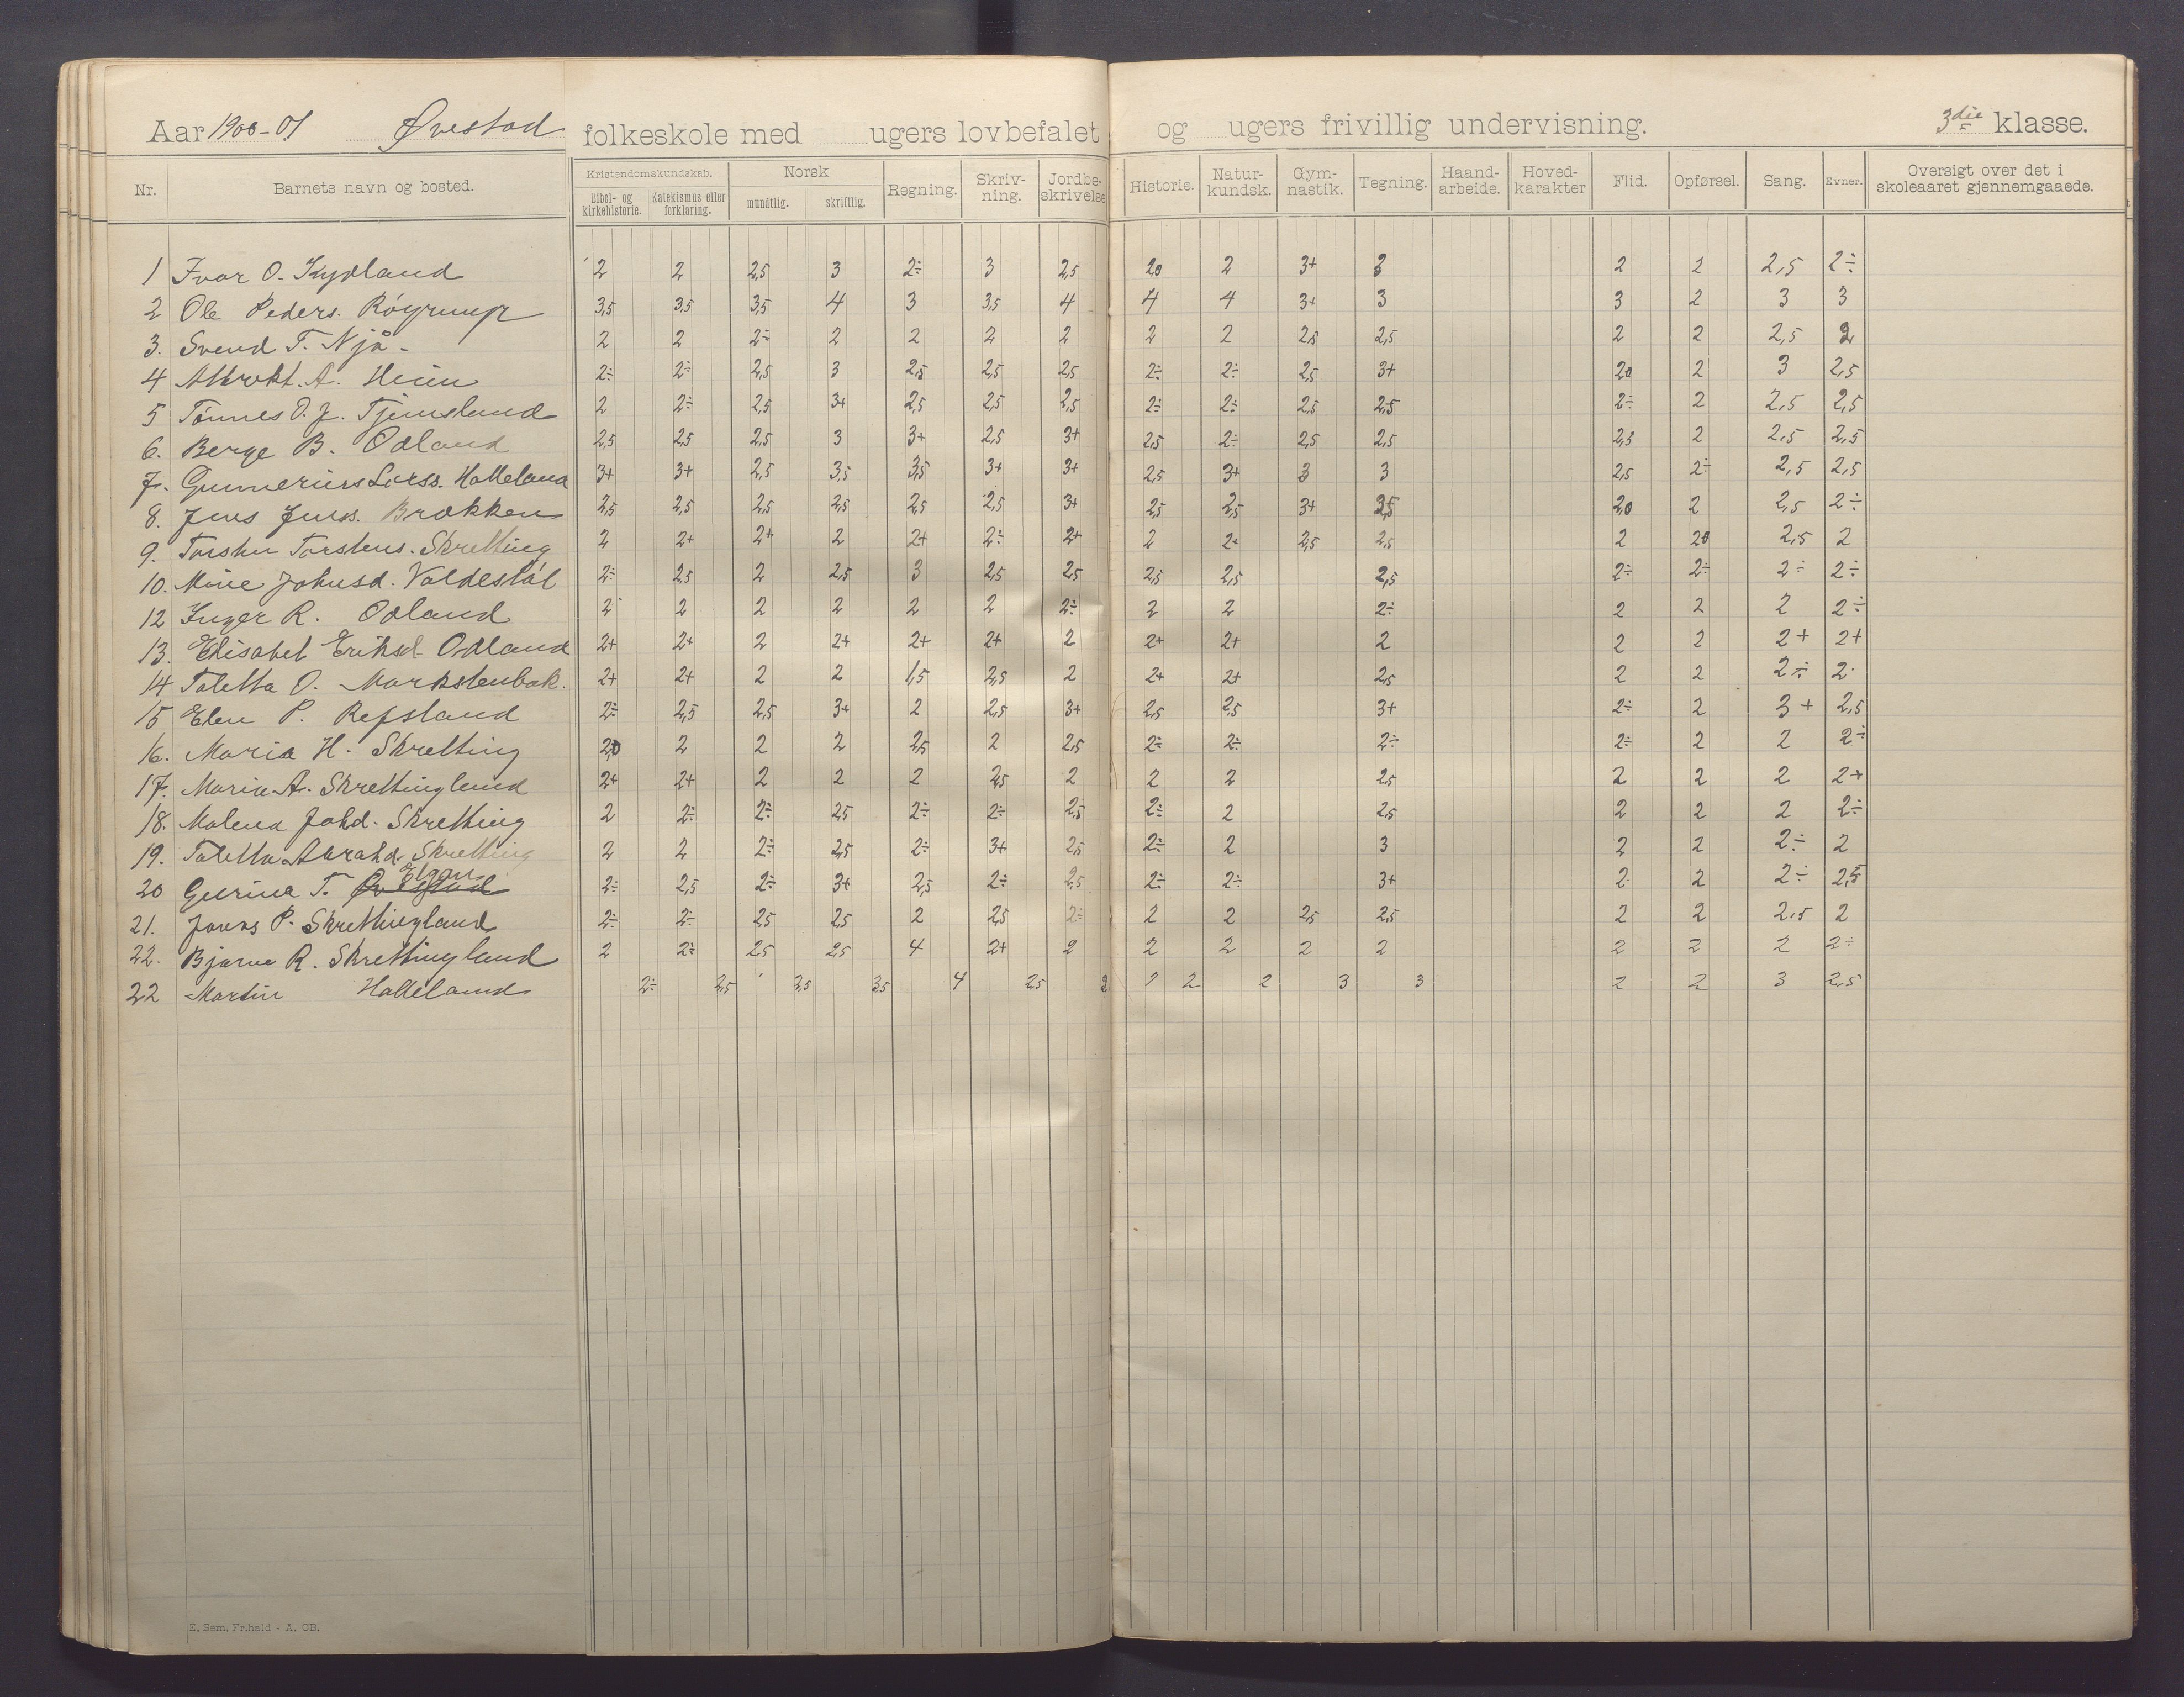 Aar 1900-01 Øvestad folkeskole med ugers lovbefalet og ugers frivillig undervisning. 3die klasse.
Nr. Barnets navn og bosted. Kristendomskundskab. Bibel- og kirkehistorie. Katekismus eller forklaring. Norsk mundtlig. skriftlig. Regning. Skriv-ning. Jordbe-skrivelse Historie. Natur-kundsk. Gym-nastik. Tegning. Haand-arbeide. Hoved-karakter Flid. Opførsel. Sang. Evner. Oversigt over det i skoleaaret gjennemgaaede.
1 Ivar O. Kydland 2 2 2,5 3 2÷ 3 2,5 2,0 2 3+ 3 2 2 2,5 2÷
2 Ole Peders. Röyrump 3,5 3,5 3,5 4 3 3,5 4 4 4 3+ 3 3 2 3 3
3. Svend T. Njå - 2 2 2÷ 2 2 2 2 2 2 2,5 2,5 2 2 2,5 2
4 A. Heien 2÷ 2÷ 2,5 3 2,5 2,5 2,5 2÷ 2÷ 2,5 3+ 2,0 2 3 2,5
5 Tönnes O. J. Tjemsland 2 2÷ 2,5 3+ 2,5 2,5 2,5 2÷ 2÷ 2,5 2,5 2÷ 2 2,5 2,5
6. Berge B. Odland 2,5 2,5 2,5 3 3+ 2,5 3+ 2,5 2÷ 2,5 2,5 2,3 2 2,5 2,5
7. Gunnerius Larss. Halleland 3+ 3+ 2,5 3,5 3,5 3+ 3+ 2,5 3+ 3 3 2,5 2÷ 2,5 2,5
8. Jens Jenss. Brækken 2,5 2,5 2,5 2,5 2,5 2,5 3+ 2,5 2,5 3+ 3,5 2,0 2 2,5 2÷
9. Torsten Torstens. Skretting 2 2+ 2+ 2 2+ 2÷ 2+ 2 2+ 2,5 2,5 2 2,0 2,5 2
10. Mine Johnsd. Valdestål 2÷ 2,5 2 2,5 3 2,5 2,5 2,5 2,5 2,5 2÷ 2÷ 2÷ 2÷
12 Inger R. Odland 2 2 2 2 2 2 2÷ 2 2 2÷ 2 2 2 2÷
13. Elisabet Eriksd Odland 2+ 2+ 2 2+ 2+ 2+ 2 2+ 2+ 2 2 2 2+ 2+
14 Taletta O. Markstenbak. 2+ 2+ 2 2 1,5 2,5 2 2+ 2+ 2,5 2 2 2÷ 2
15 Elen P. Refsland 2÷ 2,5 2,5 3+ 2 2,5 3+ 2,5 2,5 3+ 2÷ 2 3+ 2,5
16. Maria H. Skretting 2,0 2 2 2 2,5 2 2,5 2÷ 2÷ 2÷ 2÷ 2 2 2÷
17. Maria A. Skrettingland 2+ 2+ 2 2 2 2,5 2 2 2 2,5 2 2 2 2+
18. Malena Johd. Skretting 2 2÷ 2÷ 2,5 2÷ 2÷ 2,5 2÷ 2 2,5 2 2 2 2÷
19. Taletta Abrahd. Skretting 2 2 2÷ 2,5 2÷ 3+ 2,5 2÷ 2 3 2 2 2÷ 2
20 Gurina T. Øvestad Elgan 2÷ 2,5 2÷ 3+ 2,5 2÷ 2,5 2÷ 2÷ 3+ 2 2 2÷ 2,5
21. Jonas P. Skrettingland 2÷ 2÷ 2,5 2,5 2 2,5 2÷ 2 2 2,5 2,5 2 2 2,5 2
22. Bjarne R. Skrettingland 2 2÷ 2,5 2,5 4 2+ 2 2 2 2 2 2 2 2 2÷
22 Martin Halleland 2÷ 2,5 2,5 3,5 4 2,5 2 2 2 3 3 2 2 3 2,5
E. Sem. Fr.hald - A. CB.